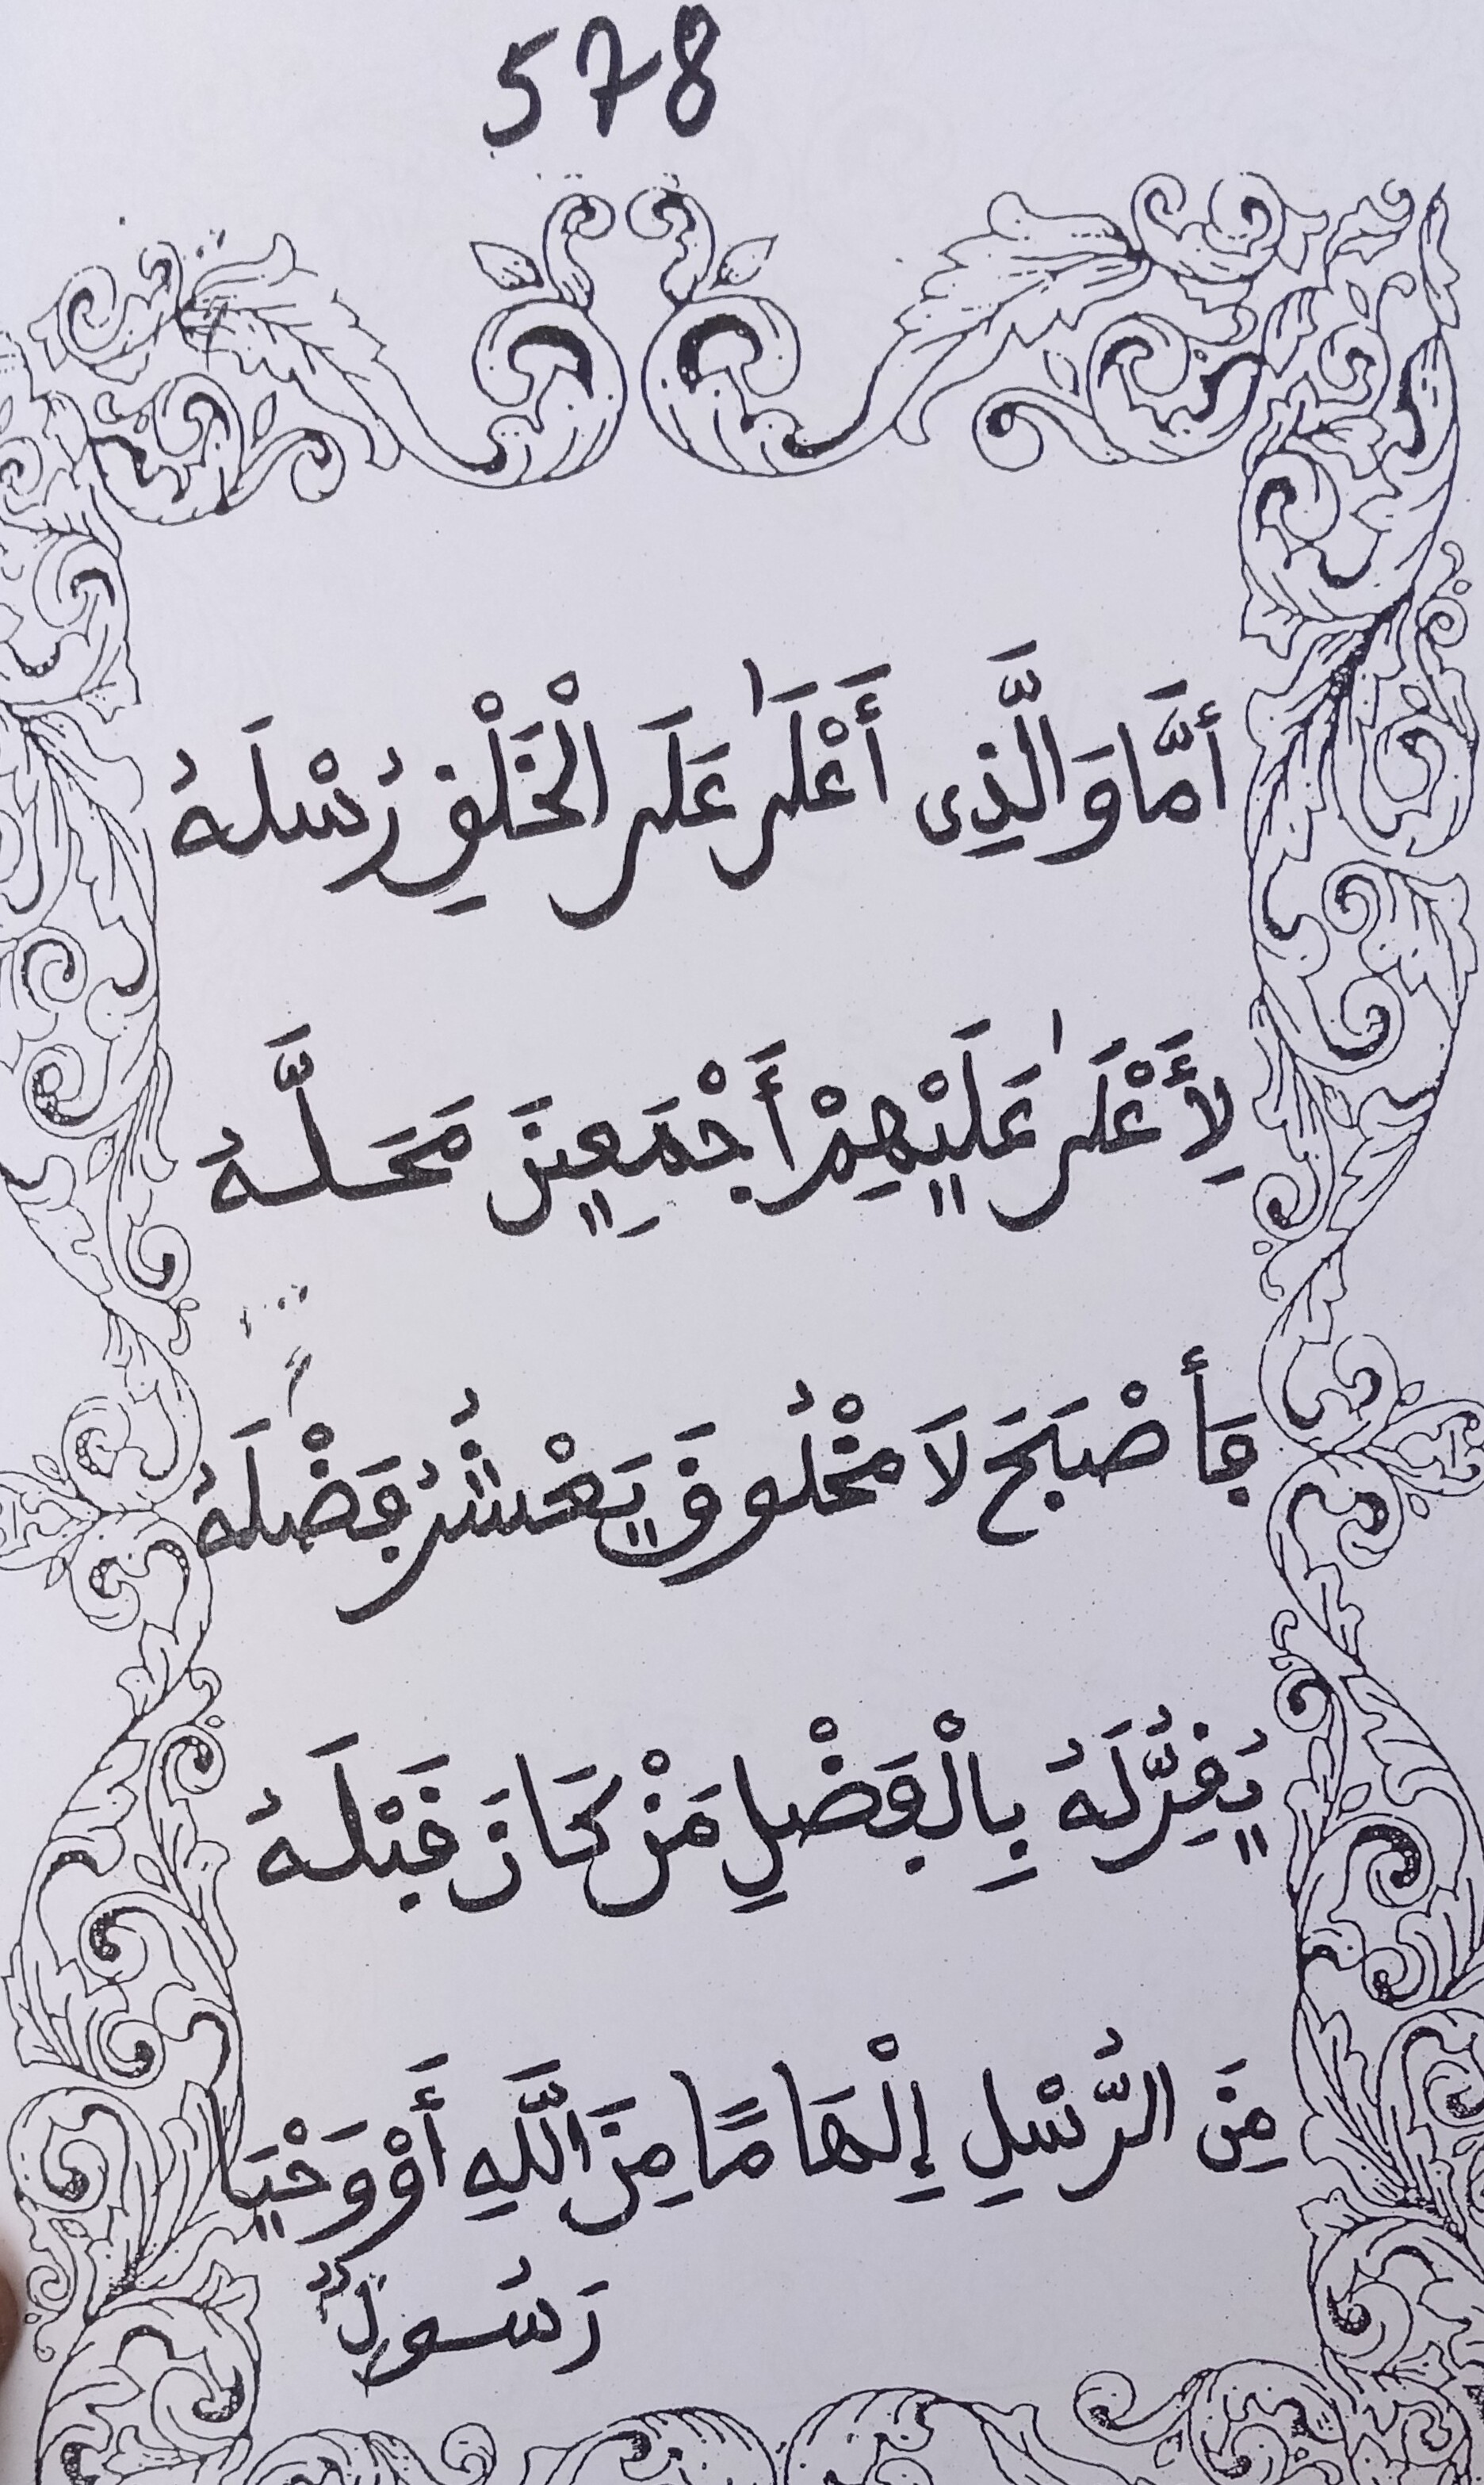 578
أَمَّا وَالَّذِى أَعْلَىٰ عَلَى الْخَلْقِ رُسْلَهُ
لِأَعْلَىٰ عَلَيْهِمْ أَجْمَعِينَ مَحَلَّهُ
فَأَصْبَحَ لَا مَخْلُوقَ يَعْشُرُ فَضْلَهُ
يُقِرُّ لَهُ بِالْفَضْلِ مَنْ كَانَ قَبْلَهُ
مِنَ الرُّسْلِ إِلْهَامًا مِنَ اللَّهِ أَوْ وَحْيَا
رَسُولٌ